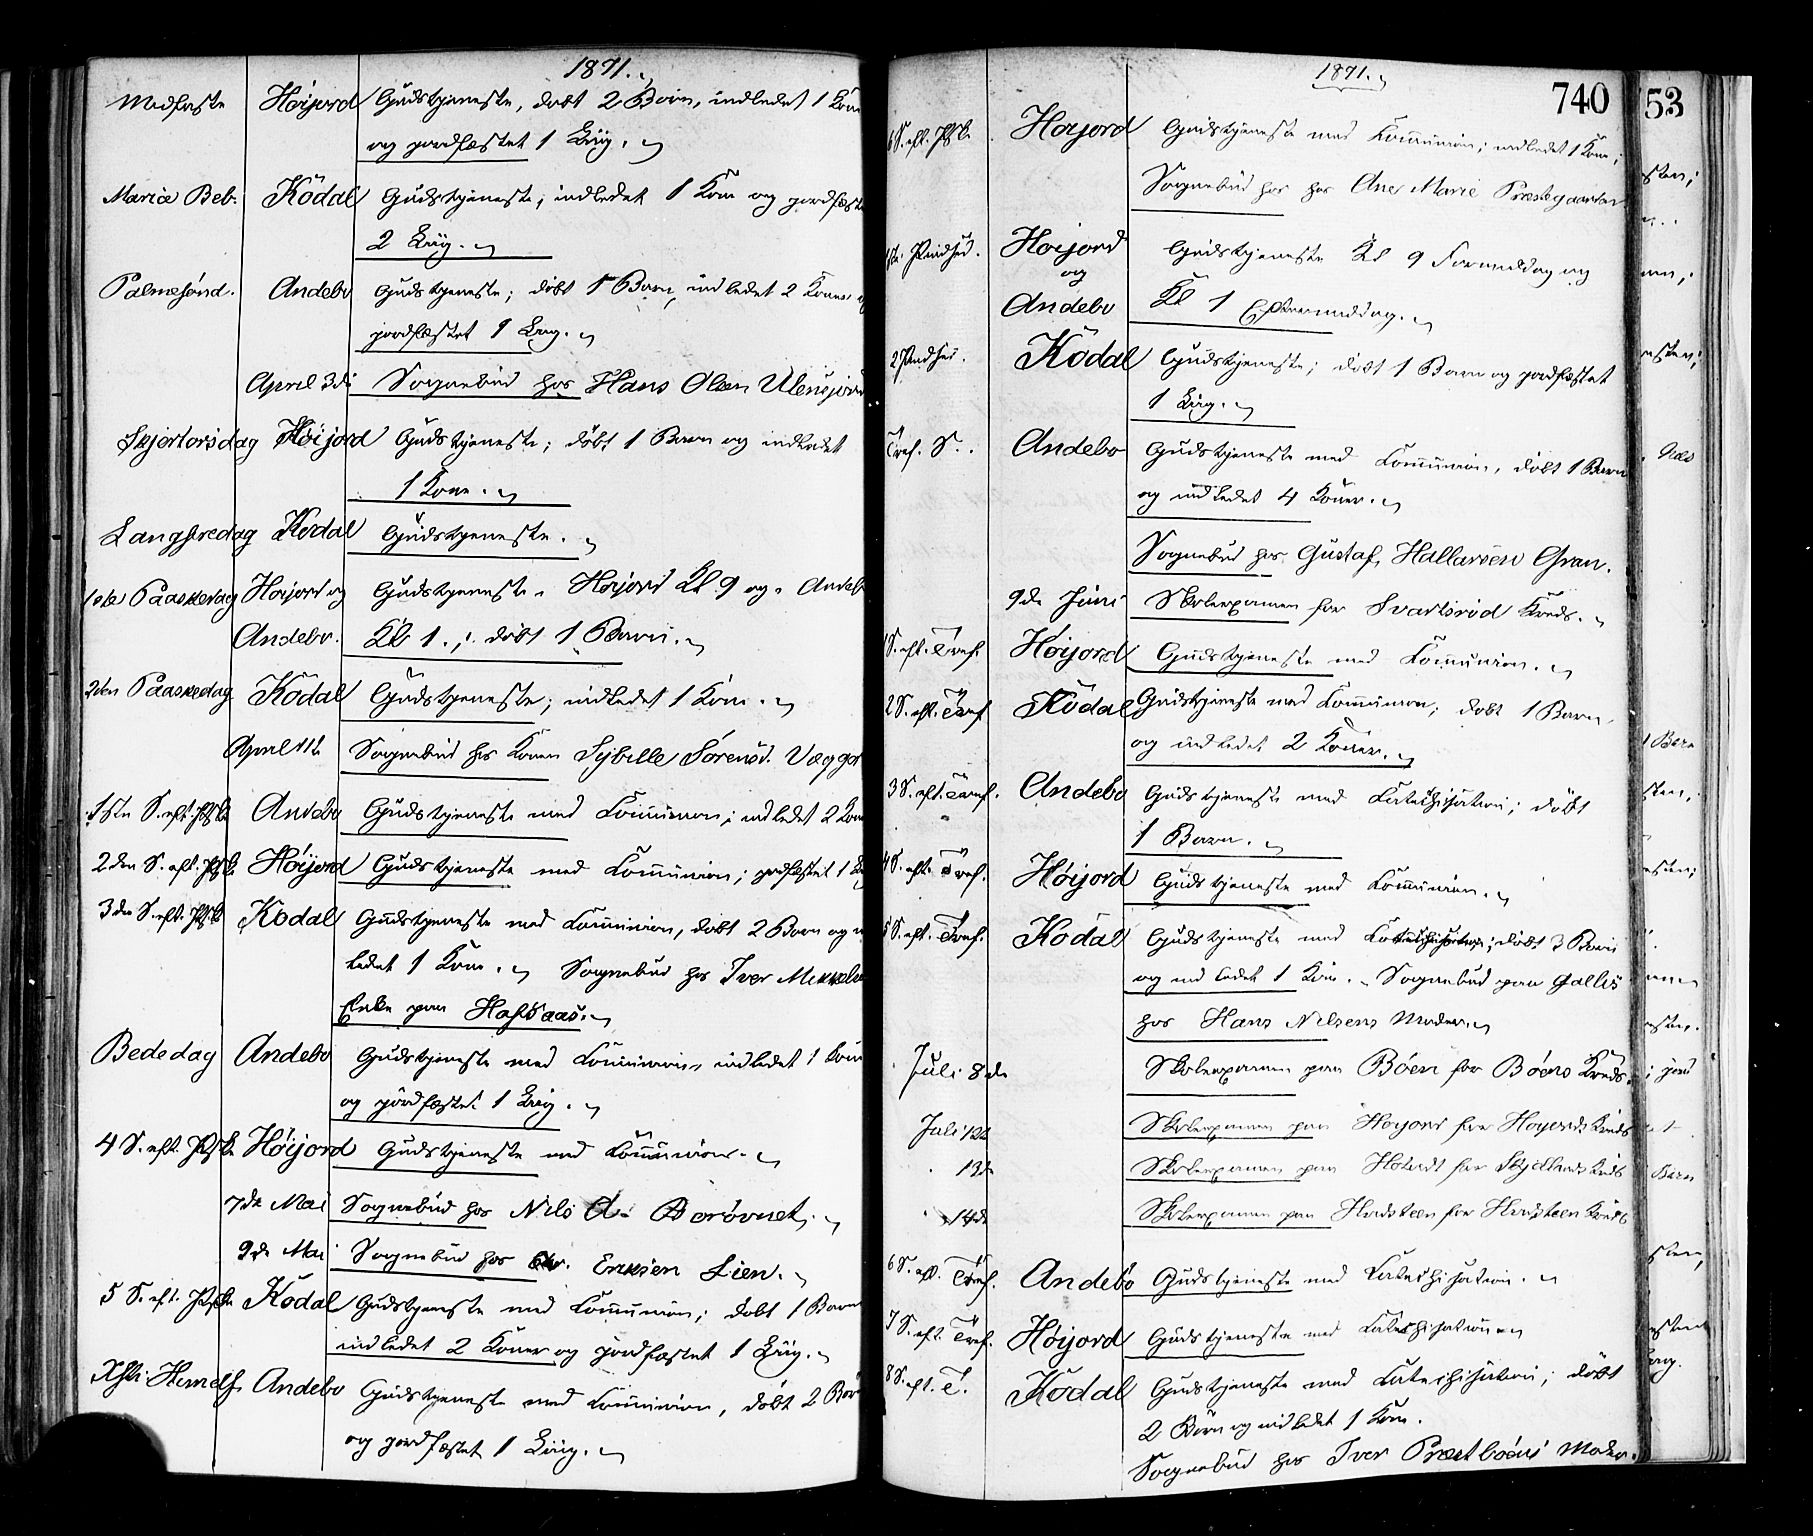 1871.
Midfaste Höijord Gudstjeneste, døbt 2 Börn, indledet 1 Kone
og jordfæstet 1 Liig.
Mariæ Beb. Kodal Gudstjeneste; indledet 1 Kone og jordfæstet
2 Liig.
Palmesönd. Andebo Gudstjeneste; döbt 1 Barn, indledet 2 Koner
jordfæstet 1 Liig.
April 3die Sognebud hos Hans Olsen
Skjertorsdag Höijord Gudstjeneste; döbt 1 Barn og indledet
1 Kone.
Langfredag Kodal Gudstjeneste.
1ste Paaskedag Höijord og Gudstjeneste, Höijord Kl. 9 og Andebo
Andebo. Kl 1.; döbt 1 Barn.
2den Paaskedag Kodal Gudstjeneste; indledet 1 Kone.
April 11te Sognebud hos Konen Sybille Sörensd.
1ste S. eft. Paaske Andebo Gudstjeneste med Communion; indledet 2 Kon
2den S. eft. Paaske Höijord Gudstjeneste med Communion; jordfæstet 1
3die S. eft. Paaske Kodal Gudstjeneste med Communion, döbt 2 Börn og
ledet 1 Kone. Sognebud hos Iver Mikkels
Enke paa Hafsaas.
Bededag Andebo Gudstjeneste med Communion, indledet 1 Kone
og jordfæstet 1 Liig.
4 S. eft. Paaske Höijord Gudstjeneste med Communion.
7de Mai Sognebud hos Nils A.
9de Mai Sognebud hos Chr. Eriksen Lien.
5 S. eft. Paaske Kodal Gudstjeneste med Communion; döbt 1 Barn
indledet 2 Koner og jordfæstet 1 Liig.
Xsti Himelf. Andebo Gudstjeneste med Communion, döbt 2 Bör
og jordfæstet 1 Liig.
1871. 740 53
6 S. eft. Paaske Höijord Gudstjeneste med Communion; indledet 1 Kone;
Sognebud hos Ane Marie Præstegaarden
1ste Pindsed. Höijord Gudstjeneste Kl 9 Formiddag og
og
Andebo Kl 1 Eftermiddag.
2 Pindsed. Kodal Gudstjeneste; döbt 1 Barn og jordfæstet
1 Liig.
Tref. S. Andebo Gudstjeneste med Communion, döbt 1 Barn
og indledet 4 Koner.
Sognebud hos Gustaf Hallarsen Gran.
9de Juni Skoleexamen for Svartsrød Kreds.
1 S. eft. Tref. Höijord Gudstjeneste med Communion.
2 S. eft. Tref. Kodal Gudstjeneste med Communion; döbt 1 Barn,
og indledet 2 Koner.
3 S. eft. Tref. Andebo Gudstjeneste med Catechisation; döbt
1 Barn.
4 S. eft. Tref. Höijord Gudstjeneste med Communion.
5 S. eft. Tref. Kodal Gudstjeneste med döbt 3 Börn
og indledet 1 Kone. Sognebud paa Gallis
hos Hans Nilsens Moder.
Juli 8de Skoleexamen paa Böen for Böens Kreds.
Juli 12te Skoleexamen paa Höijord for Höijords Kreds
13de Skoleexamen paa for Kreds
14de Skoleexamen paa Hvidsteen for Hvidsteen Kreds
6 S. eft. Tref. Andebo Gudstjeneste med Catechisation.
7 S. eft. Tref. Höijord Gudstjeneste med Catechisation
8 S. eft. T. Kodal Gudstjeneste med Catechisation; döbt
2 Börn og indledet 1 Kone.
Sognebud hos Iver Præstbøens Moder.